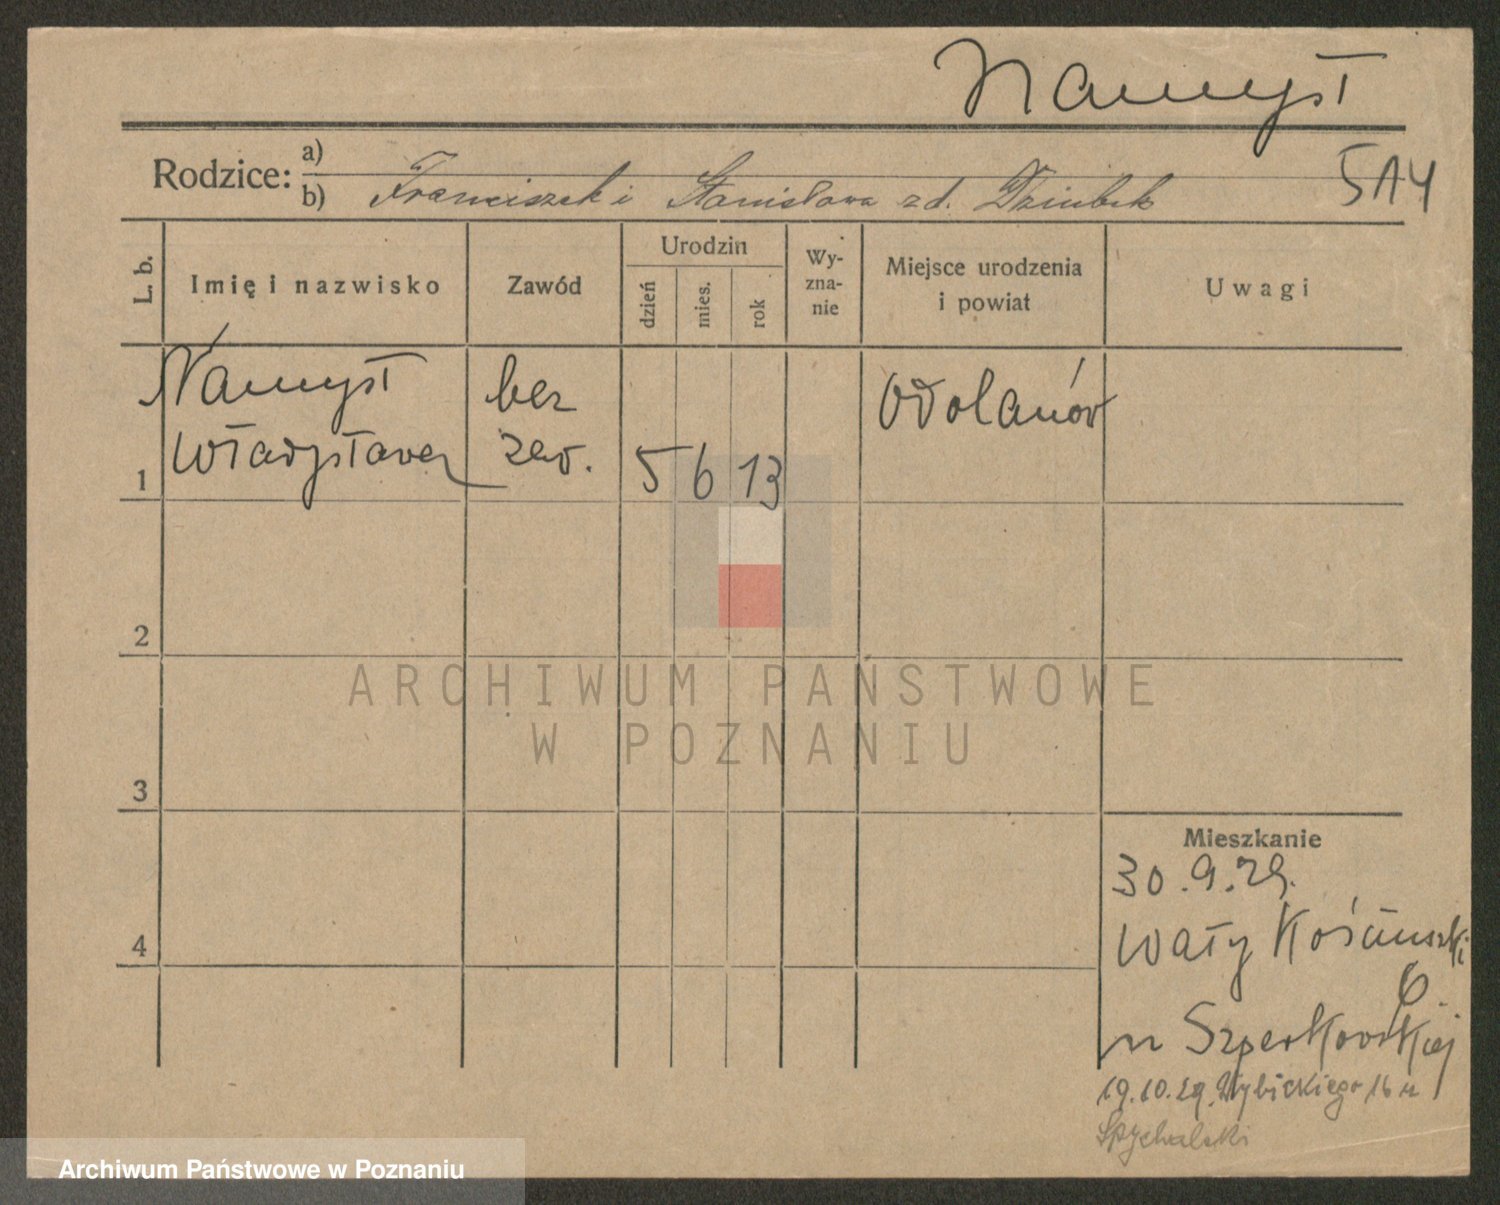 Namysł
Rodzice: a)
b) Franciszek i Stanisława zd. Dziubek
5A4
L. b.
Imię i nazwisko
Zawód
Urodzin
dzień
mies.
rok
Wy-
zna-
nie
Miejsce urodzenia
i powiat
Uwagi
Namysł
Władysława
bez
zaw.
5 6 13
Odolanów
1
2
3
4
ARCHIWUM PAŃSTWOWE
W POZNANIU
Mieszkanie
30.9.29.
Wały Kościuszki
6
u Szperkowskiej
19.10.29. Wybickiego 16 u
Spychalski
Archiwum Państwowe w Poznaniu